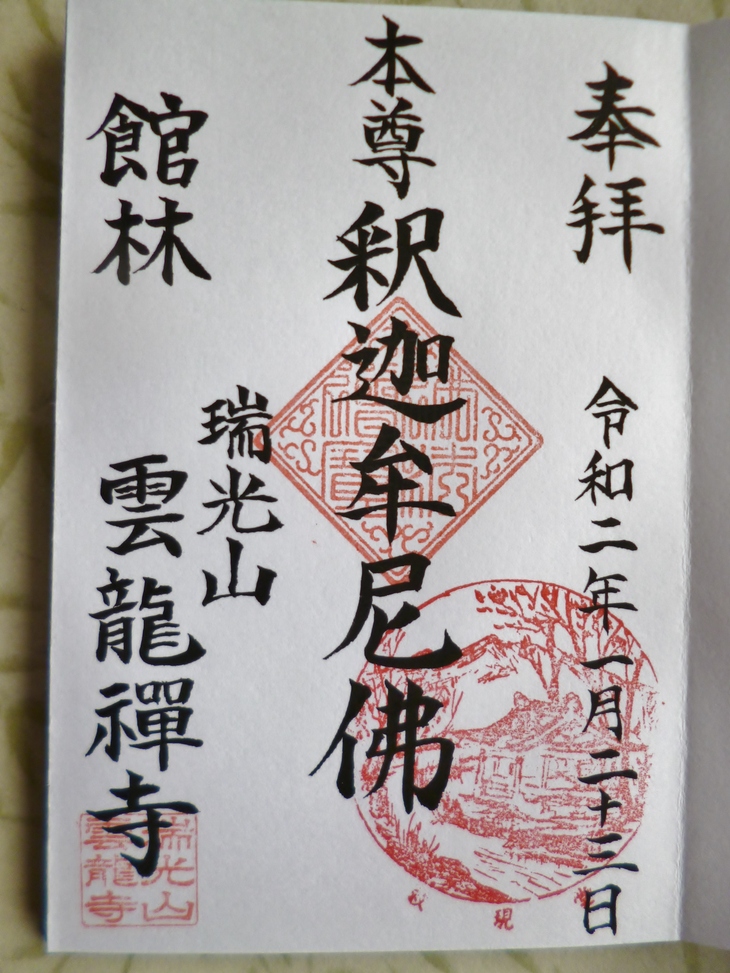 奉拝
令和二年一月二十三日
本尊
釈迦牟尼佛
瑞光山
館林
雲龍禪寺
瑞光山
雲龍寺